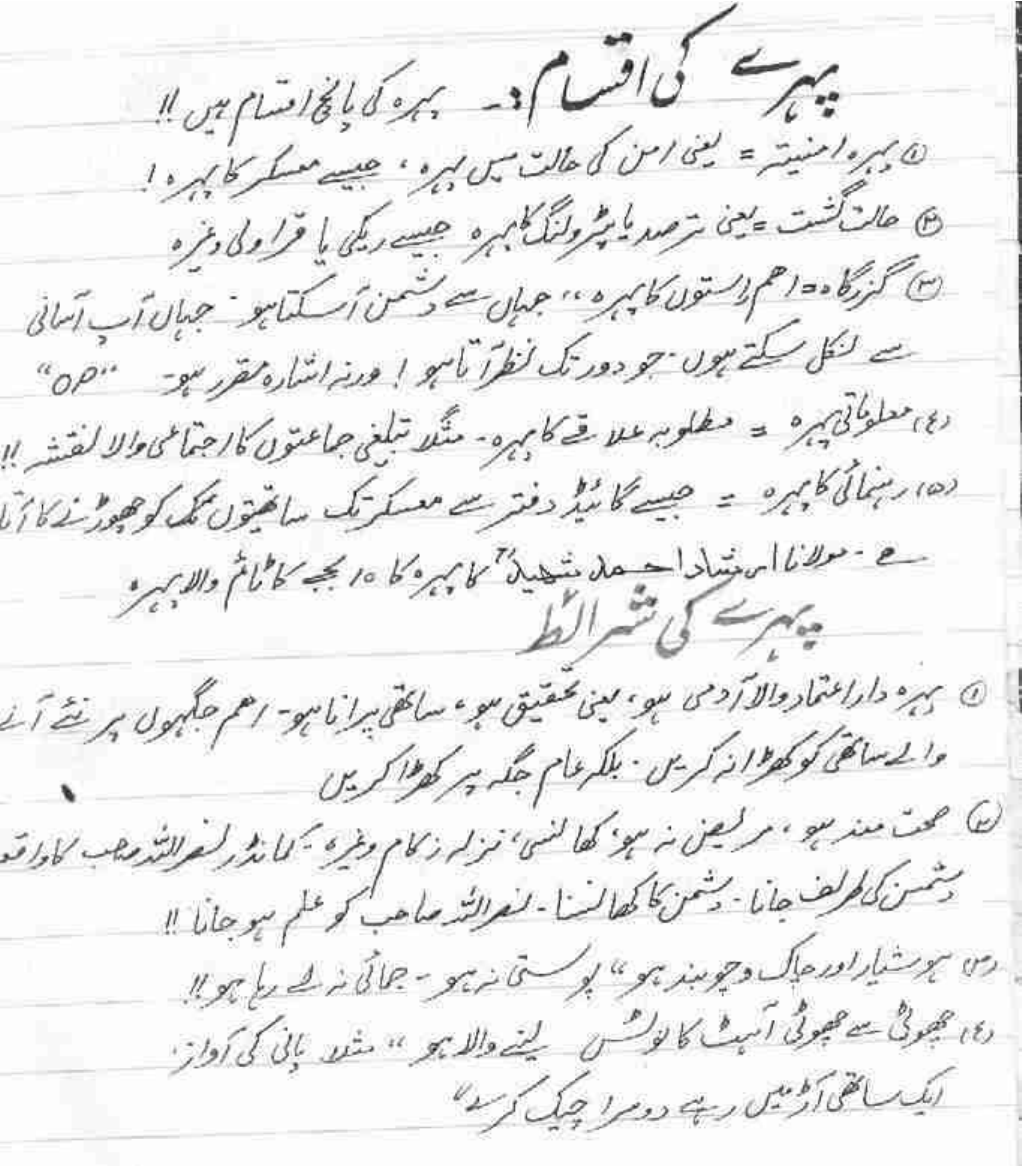 پہرے کی اقسام :۔ پہرہ کی پانچ اقسام ہیں !!
① پہرہ امنیتہ = یعنی امن کی حالت میں پہرہ ، جیسے معسکر کا پہرہ !
② حالت گشت = یعنی ترصد یا پٹرولنگ کا پہرہ جیسے ریکی یا قراولی وغیرہ
③ گزرگاہ = اھم راستوں کا پہرہ ،، جہاں سے دشمن آسکتا ہو - جہاں آپ آسانی
سے نکل سکتے ہوں - جو دور تک نظر آتا ہو ! ورنہ اشارہ مقرر ہو - “OP”
(٤) معلوماتی پہرہ = مطلوبہ علاقے کا پہرہ - مثلاً تبلیغی جماعتوں کا اجتماعی والا نقشہ !!
(۵) رہنمائی کا پہرہ = جیسے گائیڈ دفتر سے معسکر تک ساتھیوں تک کو چھوڑنے کا آتا
ہے - مولانا ارشاد احمد شہیدؒ کا پہرہ کا ۱۰ بجے کا ٹائم والا پہرہ
پہرے کی شرائط
① پہرہ دار اعتماد والا آدمی ہو ، یعنی تحقیق ہو ، ساتھی پرانا ہو - اھم جگہوں پر نئے آنے
والے ساتھی کو کھڑا نہ کریں - بلکہ عام جگہ پر کھڑا کریں
② صحت مند ہو ، مریض نہ ہو ، کھانسی ، نزلہ زکام وغیرہ - کمانڈر نصراللہ صاحب کا واقعہ
دشمن کی طرف جانا - دشمن کا کھانسنا - نصراللہ صاحب کو علم ہو جانا !!
(۳) ہوشیار اور چاک و چوبند ہو “ پوستی نہ ہو - جمائی نہ لے رہا ہو !!
(٤) چھوٹی سے چھوٹی آہٹ کا نوٹس لینے والا ہو “ مثلاً پانی کی آواز ،
ایک ساتھی آڑ میں رہے دوسرا چیک کرے “